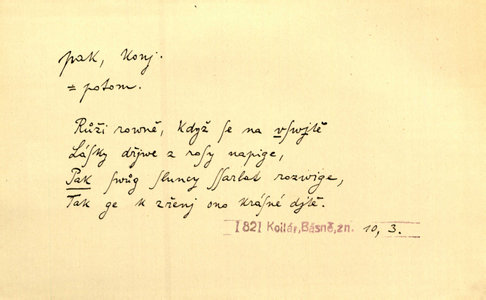 pak, konj.
= potom.
Růži rowně, když se na vswjtě
Lásky dřjwe z rosy napige,
Pak swůg sluncy ssarlat rozwige,
Tak ge k zřenj ono krásné djtě.
1821 Kollár, Básně, zn. 10, 3.